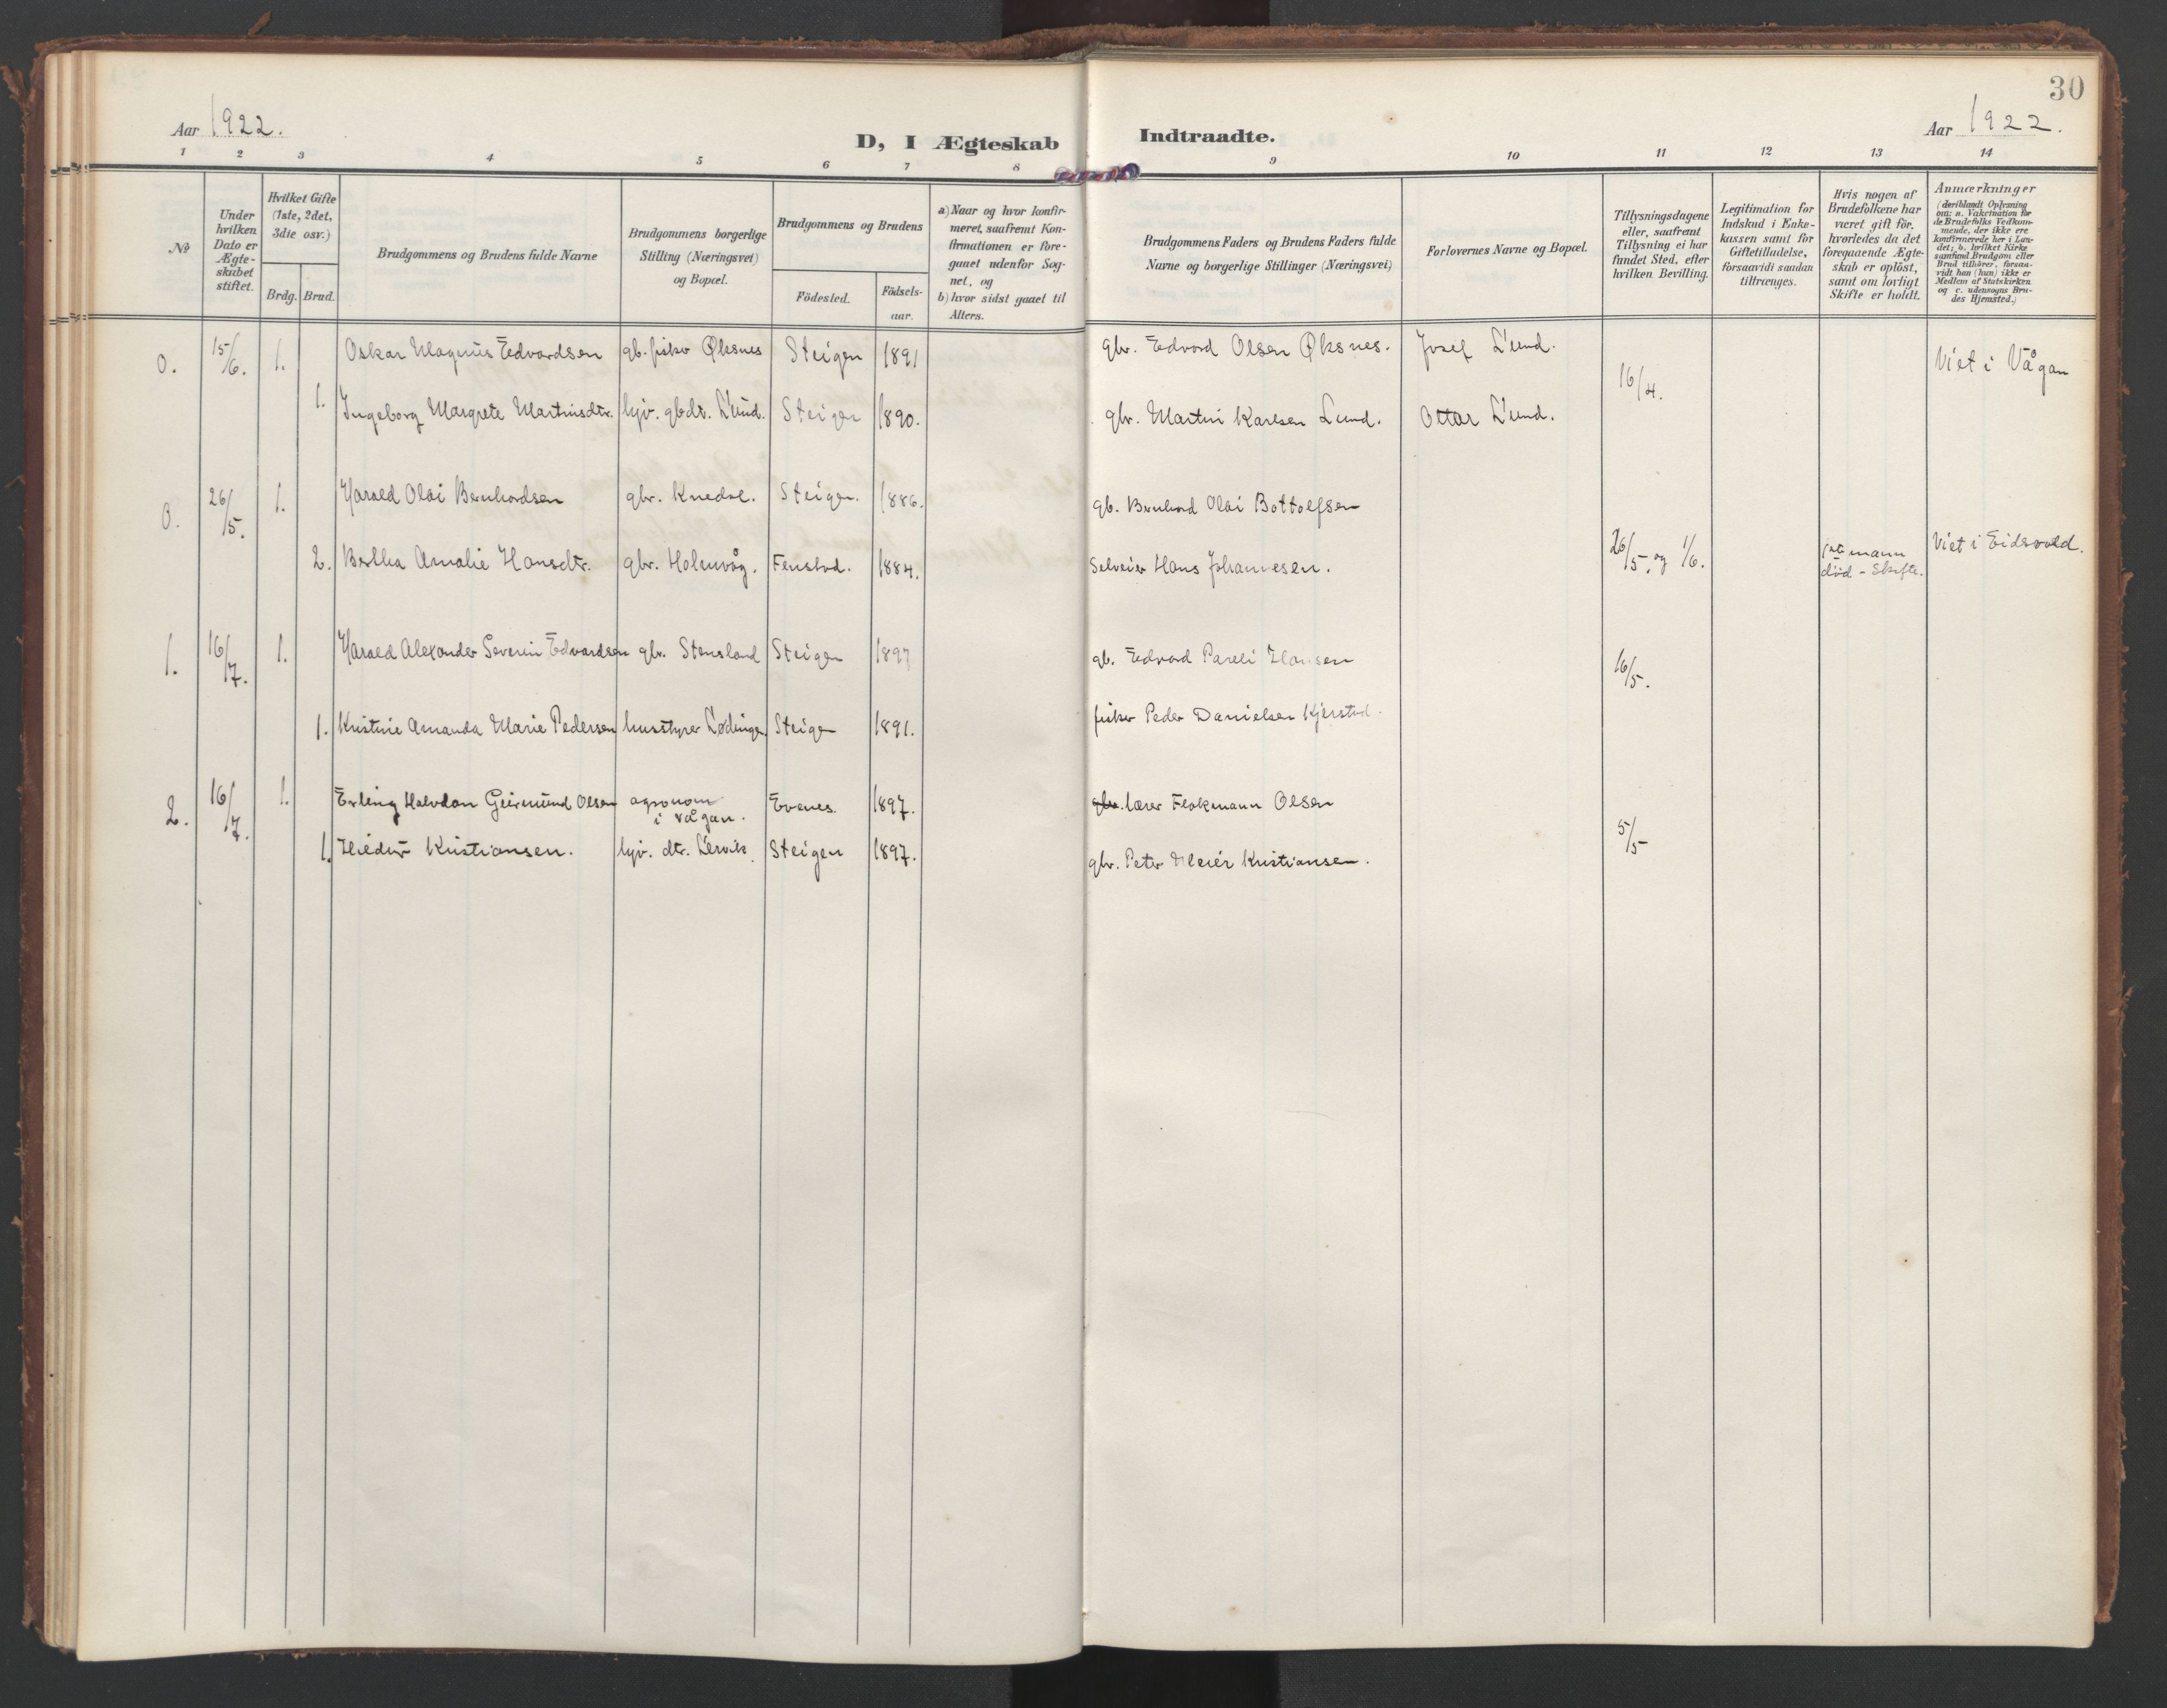 30
Aar 1922.
D, I Ægteskab Indtraadte.
Aar 1922.
1 2 3 4 5 6 7 8 9 10 11 12 13 14
№
Under
hvilken
Dato er
Ægte-
skabet
stiftet.
Hvilket Gifte
(1ste, 2det,
3die osv.)
Brdg. Brud.
Brudgommens og Brudens fulde Navne
Brudgommens borgerlige
Stilling (Næringsvei)
og Bopæl.
Brudgommens og Brudens
Födested.
Födsels-
aar.
a) Naar og hvor konfir-
meret, saafremt Kon-
firmationen er fore-
gaaet udenfor Sog-
net, og
b) hvor sidst gaaet til
Alters.
Brudgommens Faders og Brudens Faders fulde
Navne og borgerlige Stillinger (Næringsvei)
Forlovernes Navne og Bopæl.
Tillysningsdagene
eller, saafremt
Tillysning ei har
fundet Sted, efter
hvilken Bevilling.
Legitimation for
Indskud i Enke-
kassen samt for
Giftetilladelse,
forsaavidt saadan
tiltrænges.
Hvis nogen af
Brudefolkene har
været gift för,
hvorledes da det
foregaaende Ægte-
skab er oplöst,
samt om lovligt
Skifte er holdt.
Anmærkninger
(deriblandt Oplysning
om: a. Vakcination for
de Brudefolks Vedkom-
mende, der ikke ere
konfirmerede her i Lan-
det; b. hvilket Kirke-
samfund Brudgom eller
Brud tilhörer, forsaa-
vidt han (hun) ikke er
Medlem af Statskirken
og c. udensogns Bru-
des Hjemsted.)
0. 15/6. 1. Oskar Magnus Edvardsen gb. fisker Øksnes Steigen 1891 gbr. Edvard Olsen Øksnes. Josef Lund. 16/4. Viet i Vågan
1. Ingeborg Margrete Martinsdtr. hjv. gbdt. Lund. Steigen 1890. gbr. Martin Karlsen Lund. Ottar Lund.
0. 26/5. 1. Harald Olai Bernhardsen gbr. Knedal. Steigen. 1886. gb. Bernhard Olai Bottolfsen 26/5. og 1/6. Viet i Eidsvold.
2. Bertha Amalie Hansdtr. gbr. Holmvåg. 1884. Selveier Hans Johannesen. mann
død - Skifte.
1. 16/7. 1. Harald Alexander Severin Edvardsen gbr. Stensland Steigen 1897 gb. Edvard Pareli Hansen 16/5.
1. Kristine Amanda Marie Pedersen husstyrer Lødingen Steigen 1891. fisker Peder Danielsen Kjerstad.
2. 16/7. 1. Erling Halvdan Geirmund Olsen agronom
i Vågan. Evenes. 1897. gbr. lærer Flakmann Olsen 5/5
1. Kristiansen. hjv. dtr. Lervik Steigen 1897. gbr. Peter Meier Kristiansen.